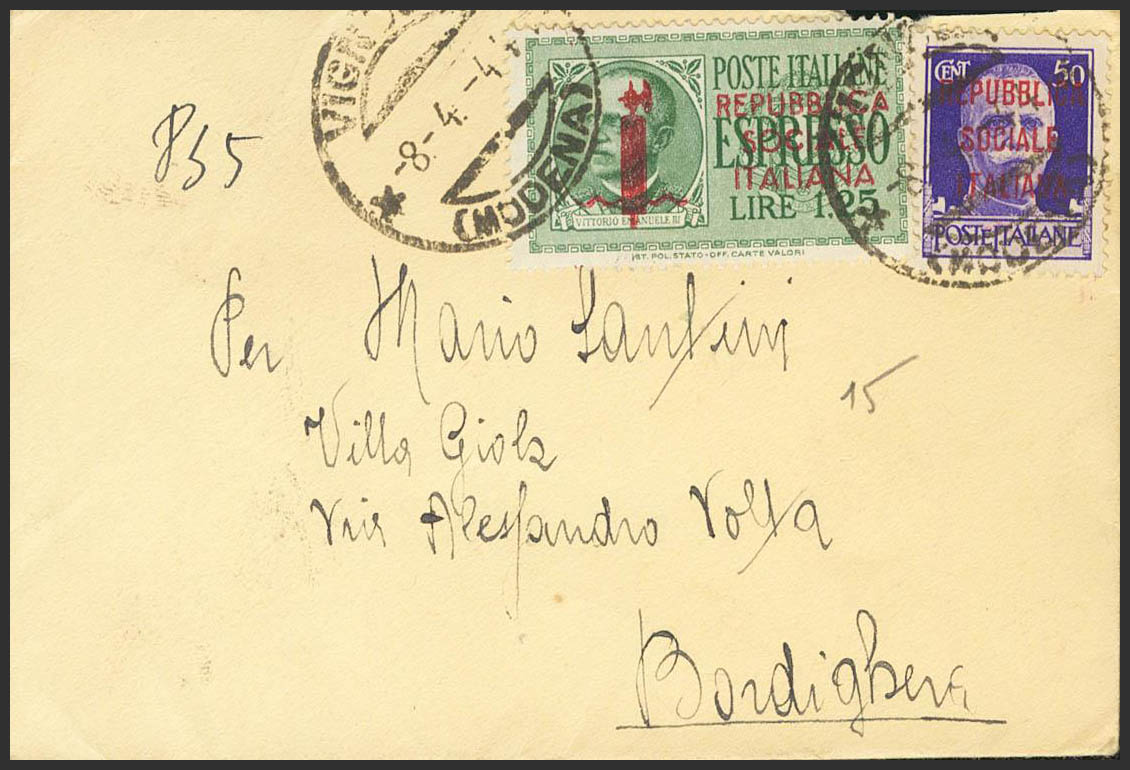 VIGN
-8-4.-4
(MODENA)
POSTE ITALIANE
REPUBBLICA
SOCIALE
ESPRESSO
ITALIANA
LIRE 1.25
VITTORIO EMANUELE III
IST. POL. STATO-OFF. CARTE VALORI
CENT 50
REPUBBLICA
SOCIALE
ITALIANA
POSTE ITALIANE
(MODENA)
835
Per Mario Santini
15
Villa Giola
Via Alessandro Volta
Bordighera